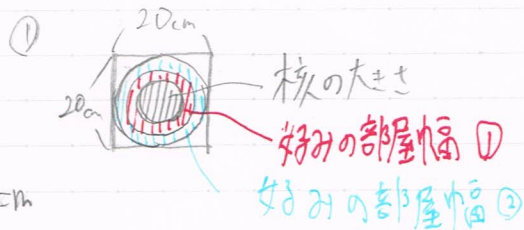 ①
20cm
20cm
核の大きさ
好みの部屋幅①
好みの部屋幅②